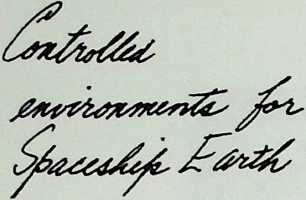 Controlled
environments for
Spaceship Earth